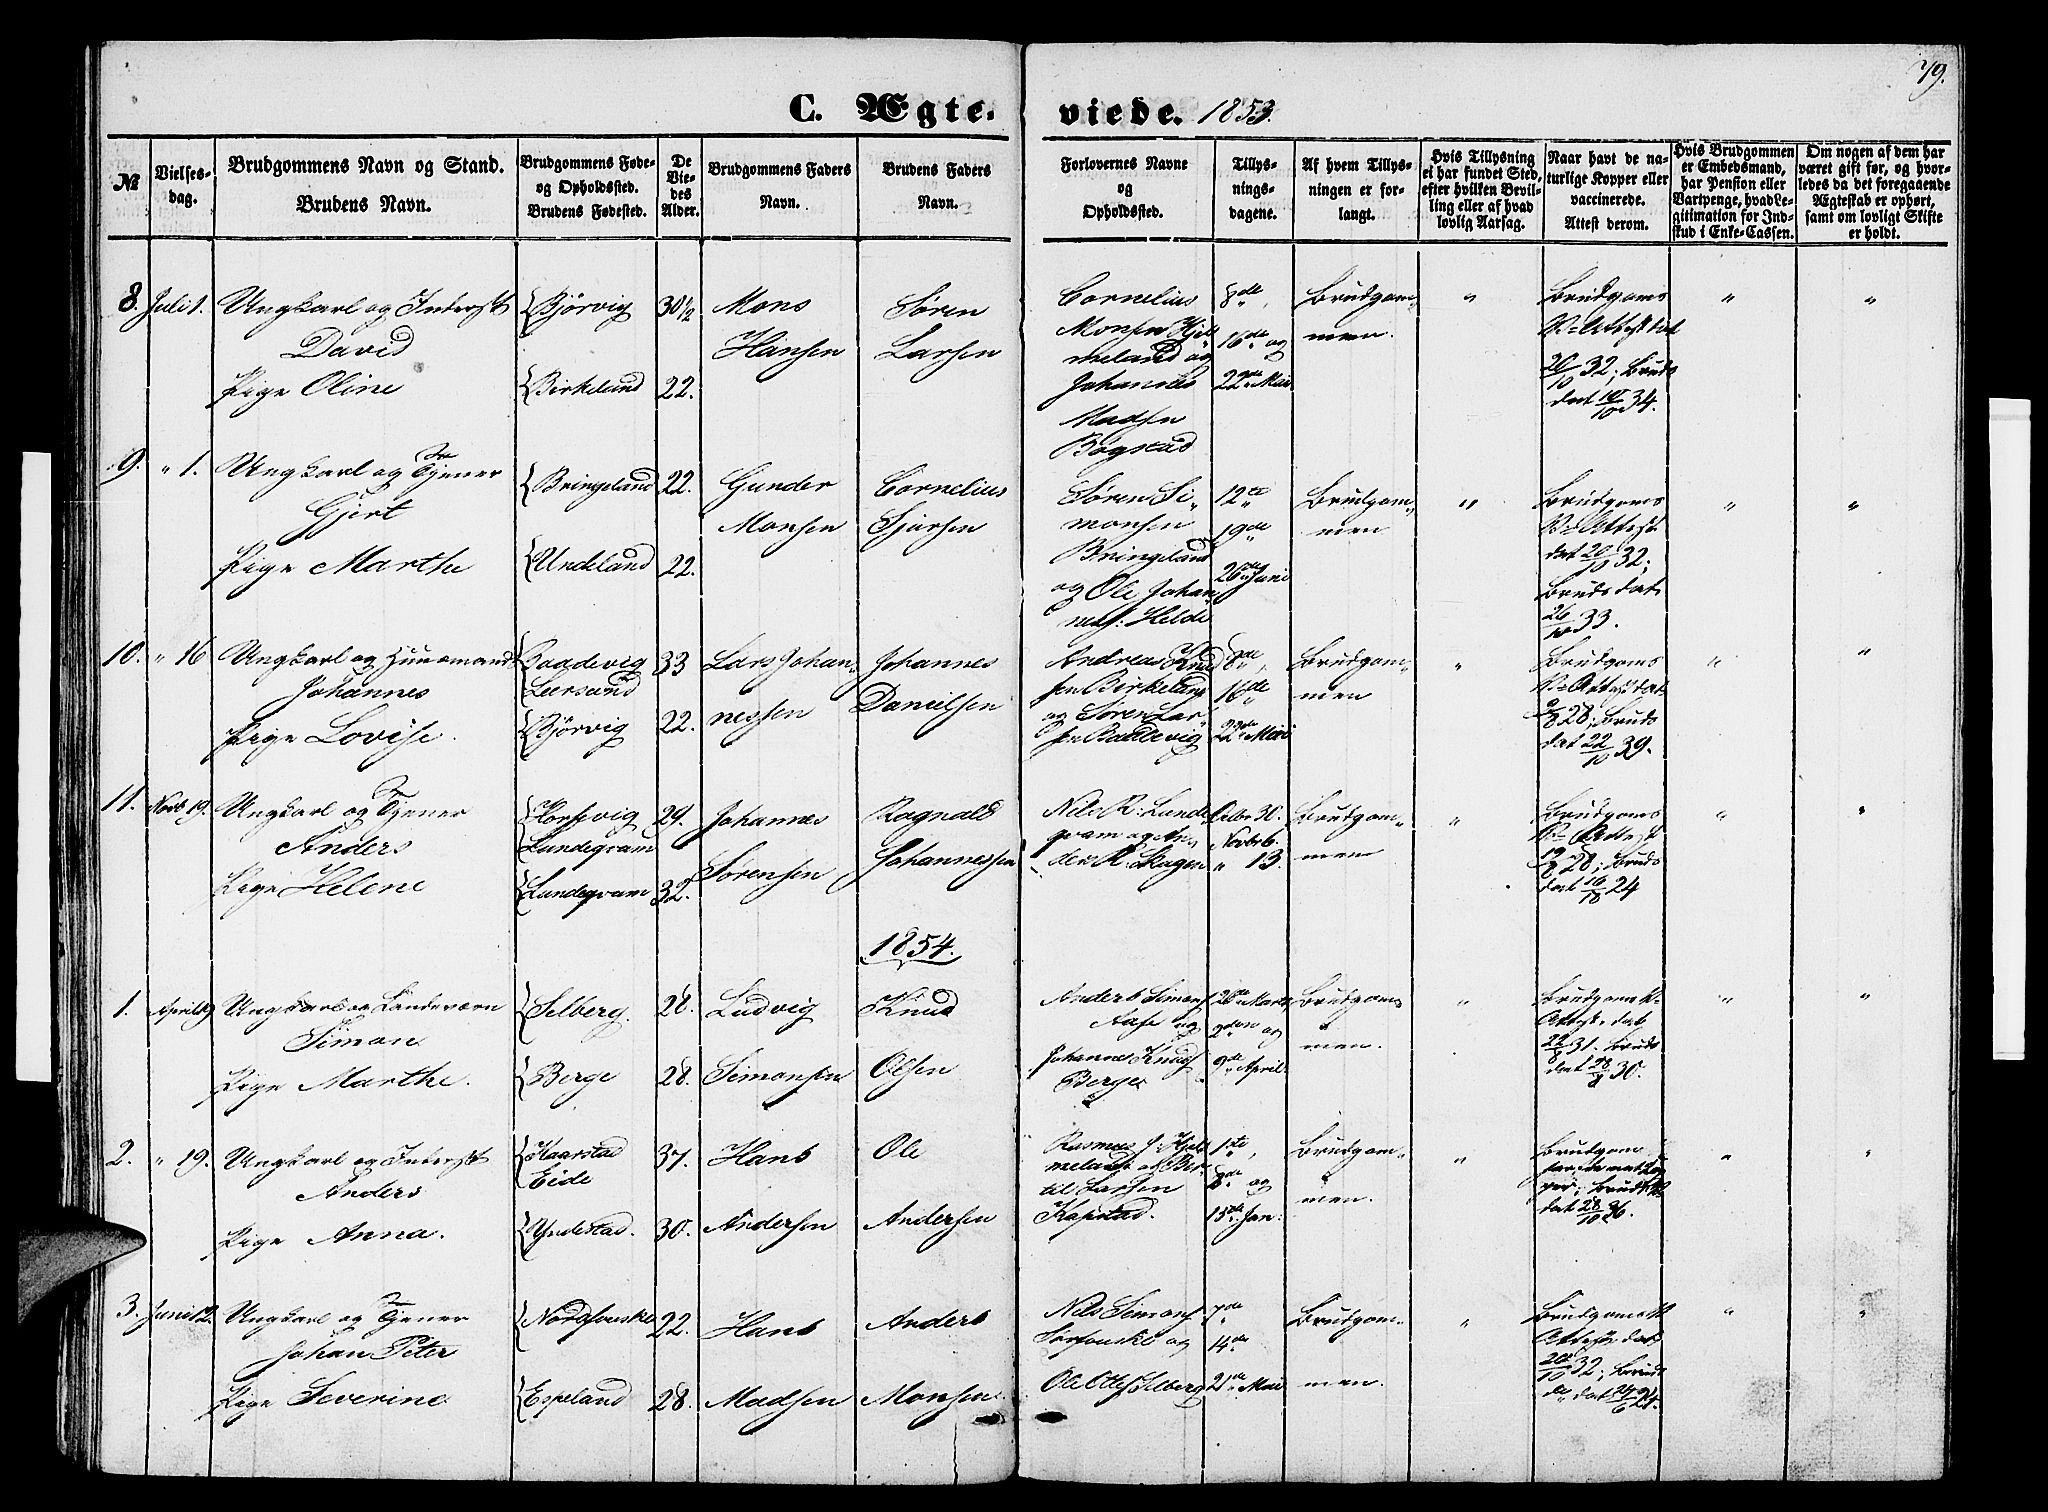 79.
C. Ægte-
viede. 1853.
№
Vielses-
dag.
Brudgommens Navn og Stand.
Brudens Navn.
Brudgommens Føde-
og Opholdssted.
Brudens Fødested.
De
Vie-
des
Alder.
Brudgommens Faders
Navn.
Brudens Faders
Navn.
Forlovernes Navne
og
Opholdssted.
Tillys-
nings-
dagene.
Af hvem Tillys-
ningen er for-
langt.
Hvis Tillysning
ei har fundet Sted,
efter hvilken Bevil-
ling eller af hvad
lovlig Aarsag.
Naar havt de na-
turlige Kopper eller
vaccinerede.
Attest derom.
Hvis Brudgommen
er Embedsmand,
har Pension eller
Vartpenge, hvad Le-
gitimation for Ind-
skud i Enke-Cassen.
Om nogen af dem har
været gift før, og hvor-
ledes da det foregaaende
Ægteskab er ophørt,
samt om lovligt Skifte
er holdt.
8. Juli 1. Ungkarl og Inderst
David
Pige Oline
Bjørvig
Birkeland
30 1/2
22.
Mons
Hansen
Søren
Larsen
Cornelius
Monsen Hjel
meland og
Johannes
Madsen
Bogstad
8de,
16de og
22de Mai
Brudgom-
men.
"
Brudgoms
V-Attest dat
20/10 32; Bruds
dat 10/10 34.
"
"
9. " 1. Ungkarl og Tjener
Gjert
Pige Marthe
Bringeland
Undeland
22.
22.
Gunder
Monsen
Cornelius
Sjursen
Søren Si-
monsen
Bringeland
og Ole Johan
nes: Helde
12te
19de
26de Juni
Brudgom-
men
"
Brudgoms
V-Attest
dat 20/10 32;
Bruds dat
26/10 33.
"
"
10. " 16 Ungkarl og Huusmand
Johannes
Pige Lovise.
Baadevig
Leersund
Bjørvig
33
22.
Lars Johan-
nessen
Johannes
Danielsen
Andreas Knud
sen Birkeland
og Søren Lar-
sen Baadevig
8de,
16de
22de Mai
Brudgom-
men
"
Brudgoms
V-Attest dat
28; Bruds
dat 22/10 39.
"
"
11. Novb 19. Ungkarl og Tjener
Anders
Pige Helene
Horsevig
Lundegram
Lundegram
29.
32.
Johannes
Sørensen
Ragnald
Johannessen
Nils R: Lunde
gram og An-
ders R: Skagen
Octbr 30.
Novbr 6.
" 13.
Brudgom-
men
"
Brudgoms
V-Attest
19/8 28; Bruds
dat 24
"
"
1854.
1. April 19 Ungkarl og Landeværn
Simon
Pige Marthe.
Selberg.
Berge
28.
28.
Ludvig
Simonsen
Knud
Olsen
Anders Simons
Aase og
Johannes Knuds
Berge
26de Marts,
2den og
9de April
Brudgom-
men.
"
Brudgoms V-
Attest. dat
22/8 31. Bruds
dat 28/8 30.
"
"
2. " 19. Ungkarl og Inderst
Anders
Pige Anna.
Kaarstad
Eide
Yndestad.
37.
30.
Hans
Andersen
Ole
Andersen
Rasmus J: Hjel
meland og Ber-
til Larsen
Kapstad.
1ste,
8de og
15de Jan:
Brudgom-
men.
"
Brudgom
dat 28/10 36.
"
"
3. Juni 12. Ungkarl og Tjener
Johan Peter
Pige Severine
Nordfouske
Espeland
22.
28.
Hans
Madsen
Anders
Monsen.
Nils Simons
Sørfouske og
Ole Ottes Selberg
7de
14de
21de Mai
Brudgom-
men.
"
Brudgoms V
Attest dat
20/10 32; Bruds
do dat 24/6 27.
"
"